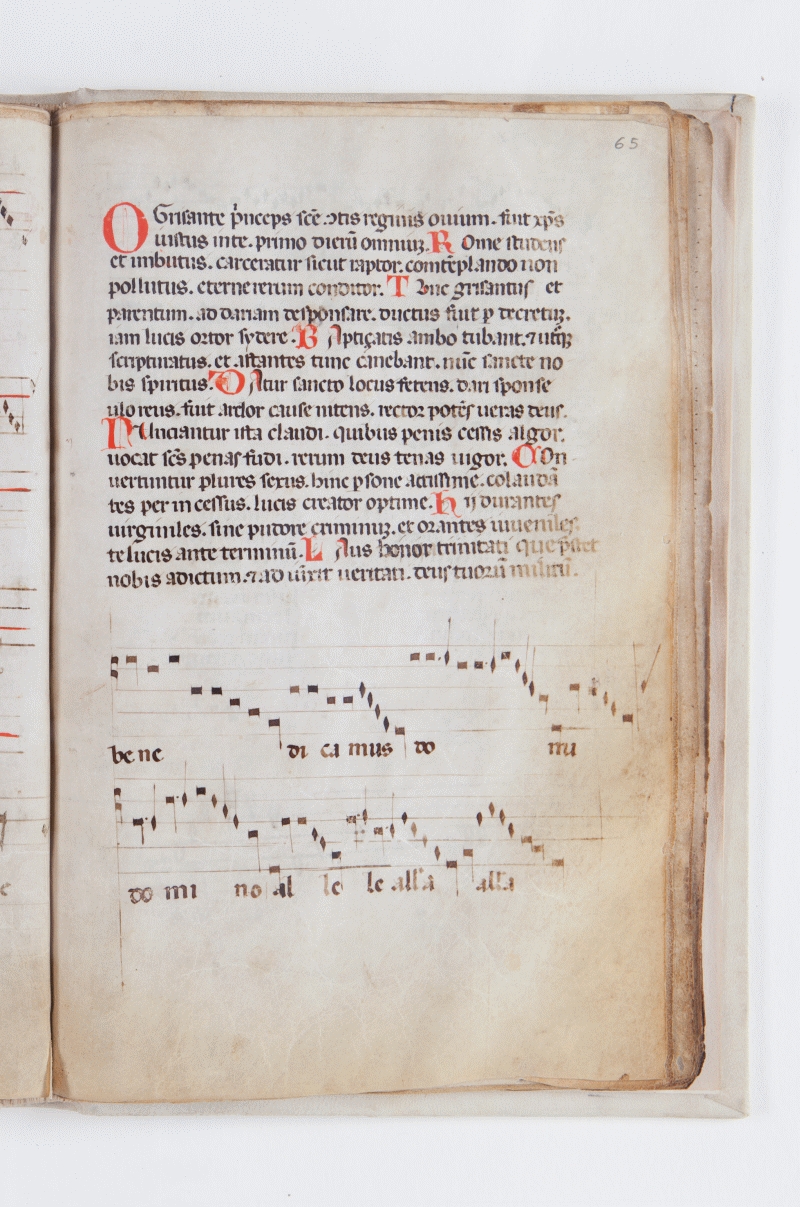 65
O Grisante p̄nceps sc̄e ↄtis reginis ouium. fuit xp̄s
uisus in te. primo dierū omniuꝫ. R Ome studens
et imbutus. carceratur sicut raptor. contēplando non
pollutus. eterne rerum conditor. T Unc grisantus et
parentum. ad dariam desponsare. ductus fuit ꝑ decretuꝫ.
iam lucis ortor sydere. B Aptiçatis ambo iubant. ⁊ utqꝫ
scripturatus. et astantes tunc canebant. nūc sancte no
bis spiritus. D Atur sancto locus fetens. dari sponse
fuit ardor cause nitens. rector potēs ueras deus.
N Unciantur ista claudi. quibus penis cessis algor.
uocat sc̄s penas fudi. rerum deus tenas uigor. C On
uertuntur plures sexus. hinc psone actissime. colaudā
tes per in cessus. lucis creator optime. h ij durantes
uirginiles. sine pudore criminuꝫ. et orantes iuueniles
te lucis ante terminū. L Aus honor trinitati que
nobis adictum. ⁊ ad uixit ueritati. deus tuorū militū.
be ne di ca mus do mi
do mi no al le le alla alla